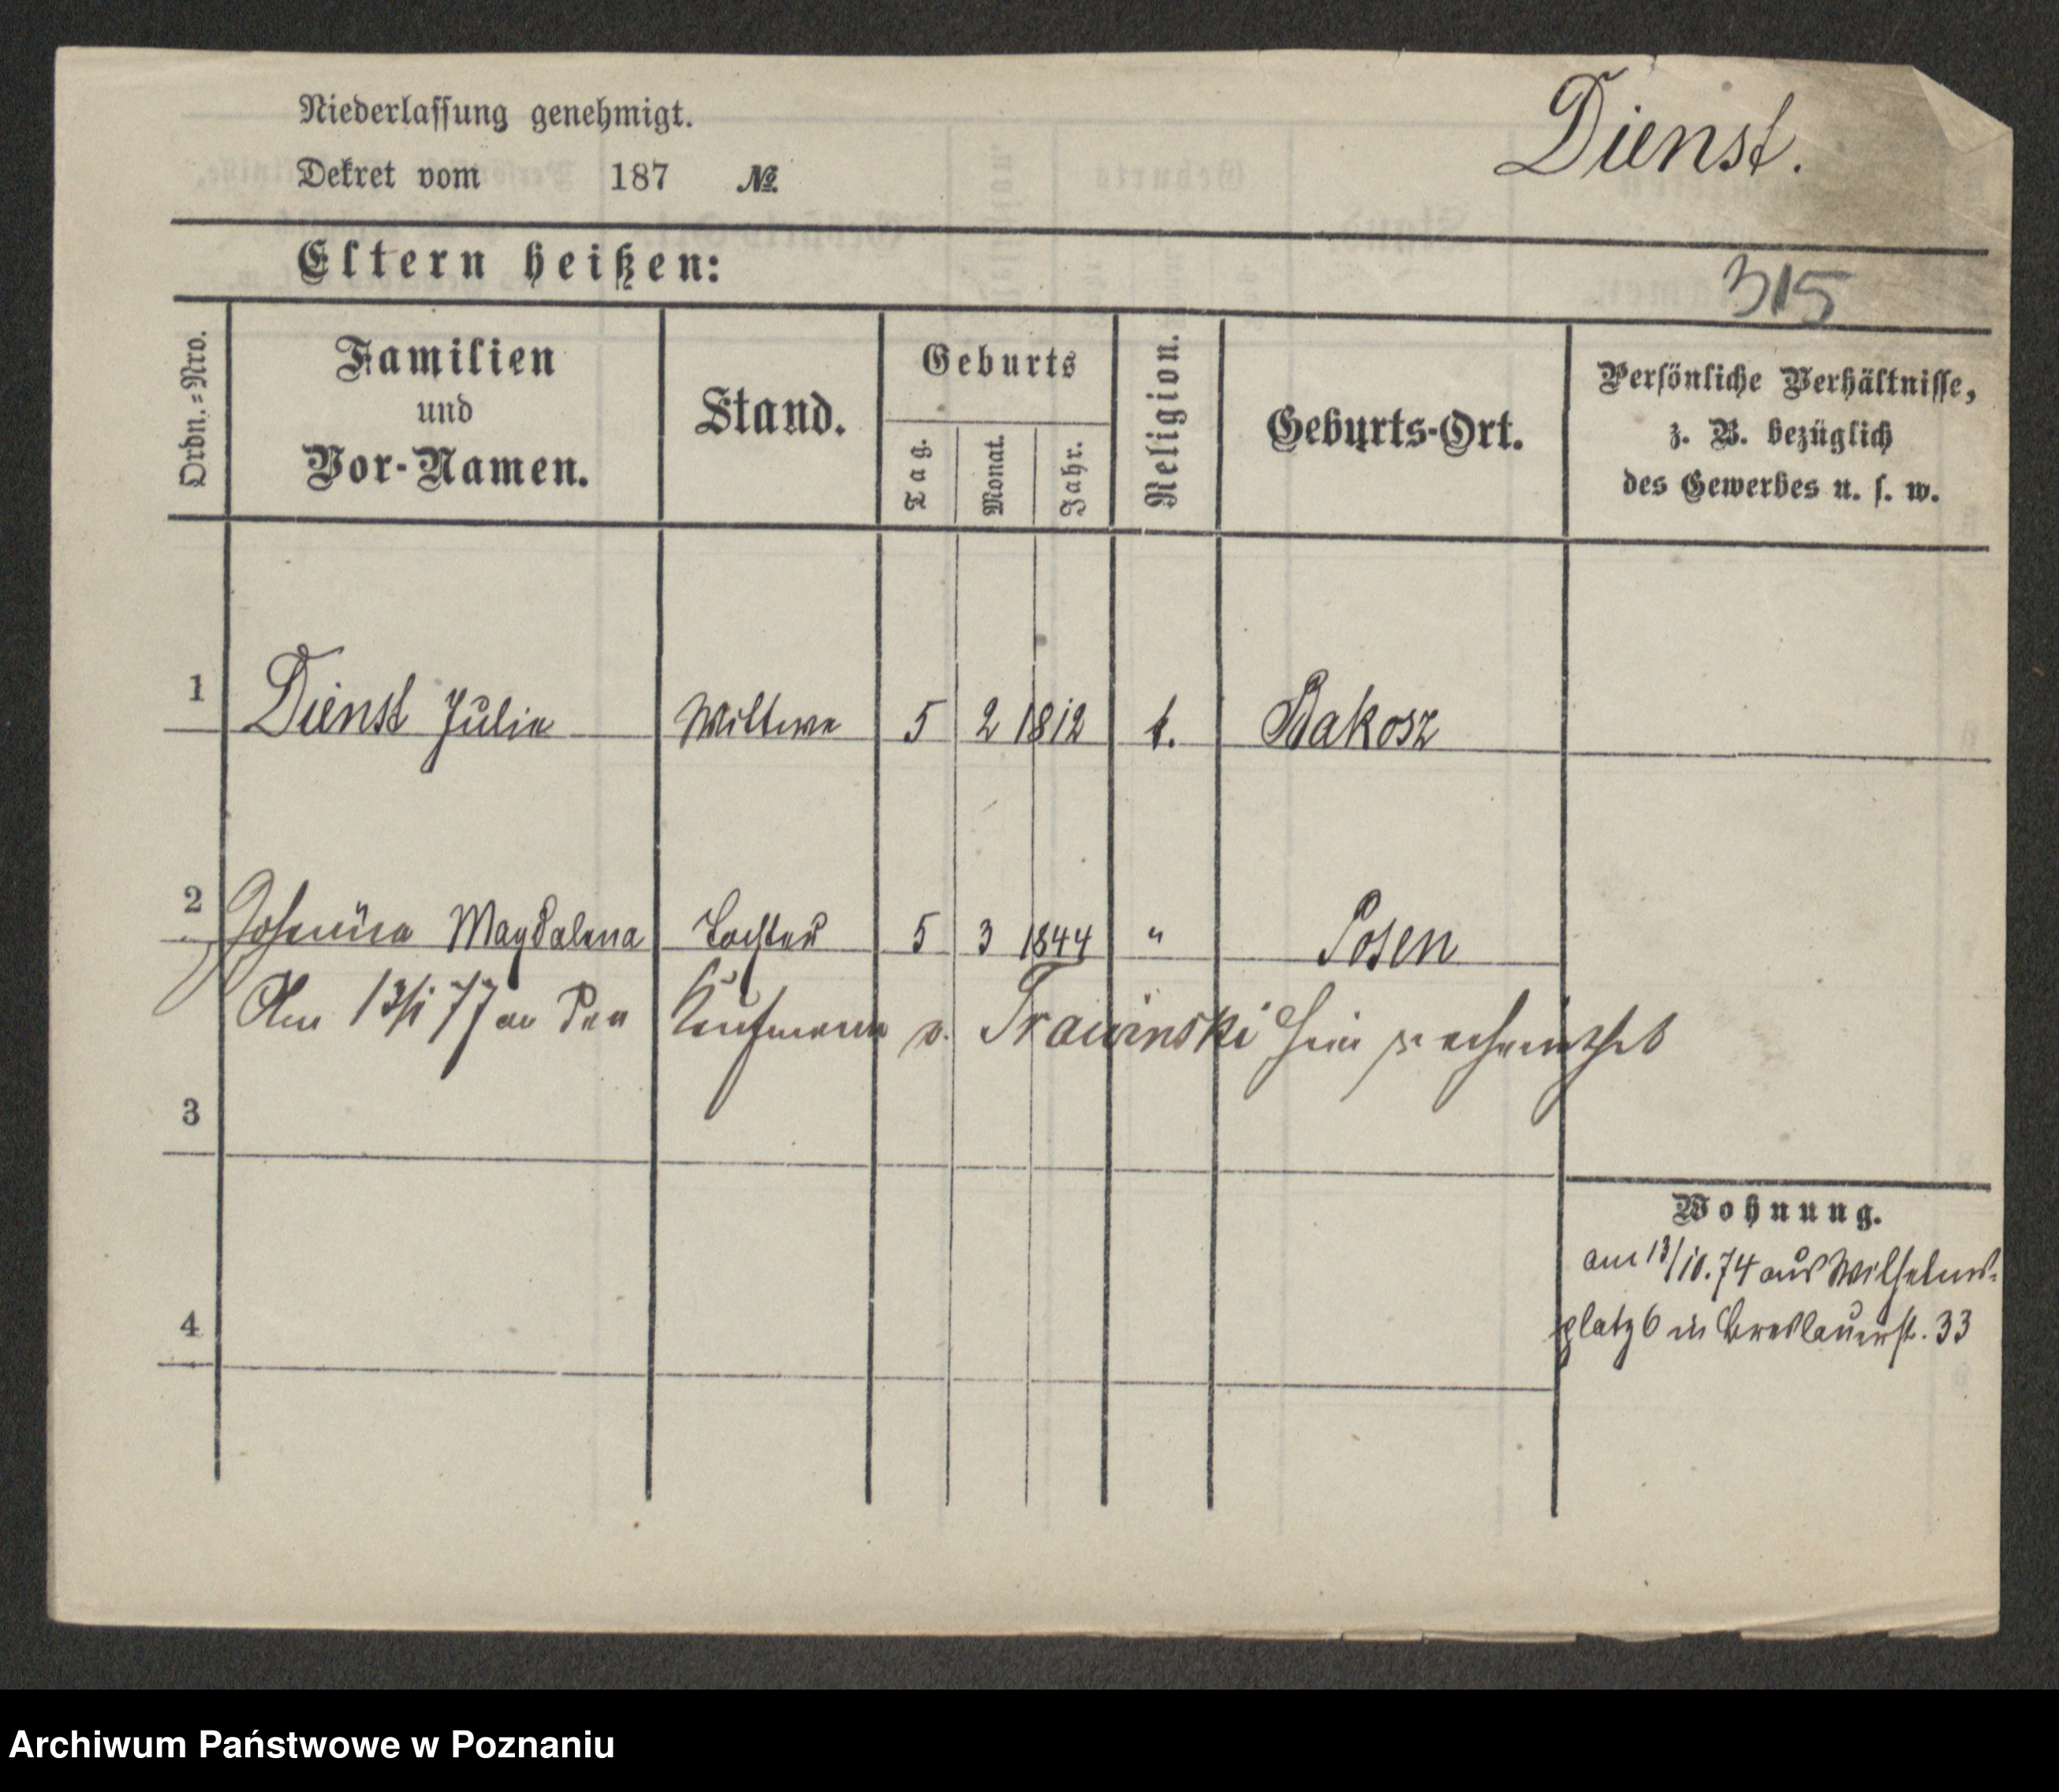 Niederlassung genehmigt.
Dienst.
Dekret vom 187 №
Eltern heißen:
315
Ordn.=Nro.
Familien
und
Vor-Namen.
Stand.
Geburts
Tag.
Monat.
Jahr.
Religion.
Geburts-Ort.
Persönliche Verhältnisse,
z. B. bezüglich
des Gewerbes u. s. w.
1 Dienst Julie Wittwe 5 2 1812 k. Bakosz
2 Magdalena Tochter 5 3 1844 " Posen
Am 13/1 77 an den Kaufmann v. Trawinski hier verheirathet
3
Wohnung.
am 13/10.74 aus Wilhelms-
platz 6 in Breslauerst. 33
4
Archiwum Państwowe w Poznaniu